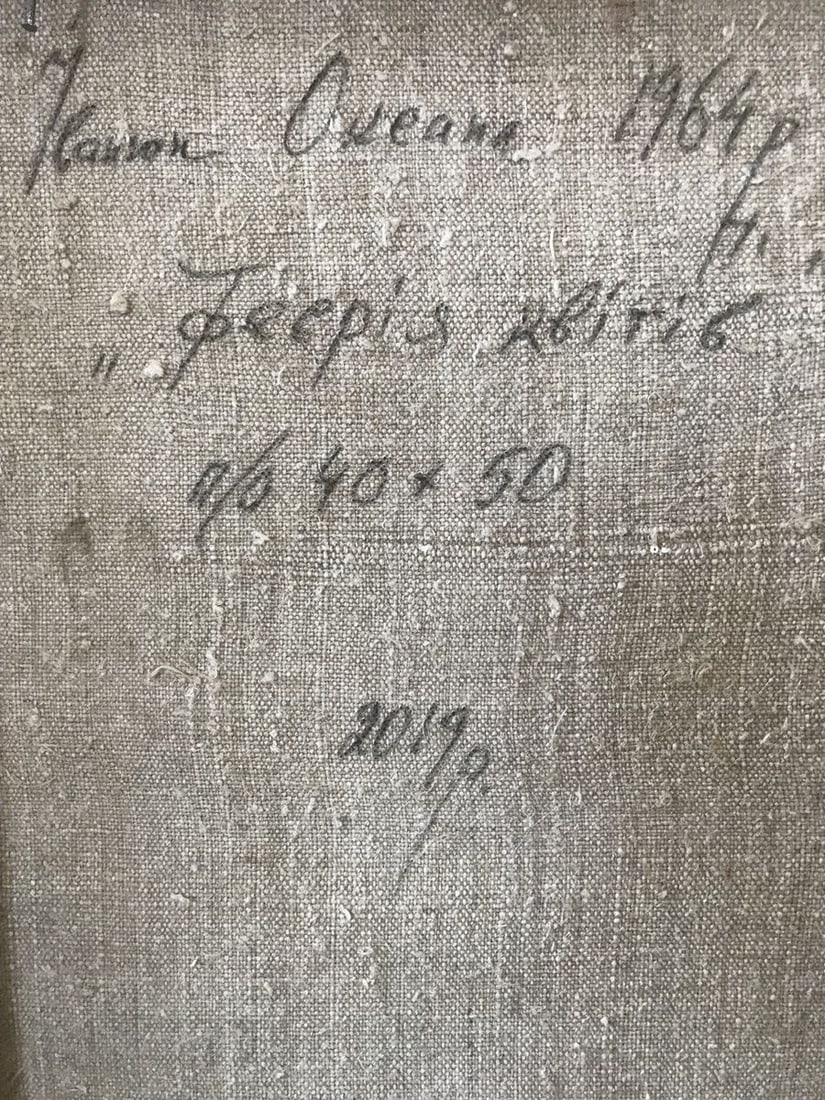 Іванюк Оксана 1964 р
н.
„ Феєрія квітів "
п/о 40 х 50
2019 р.